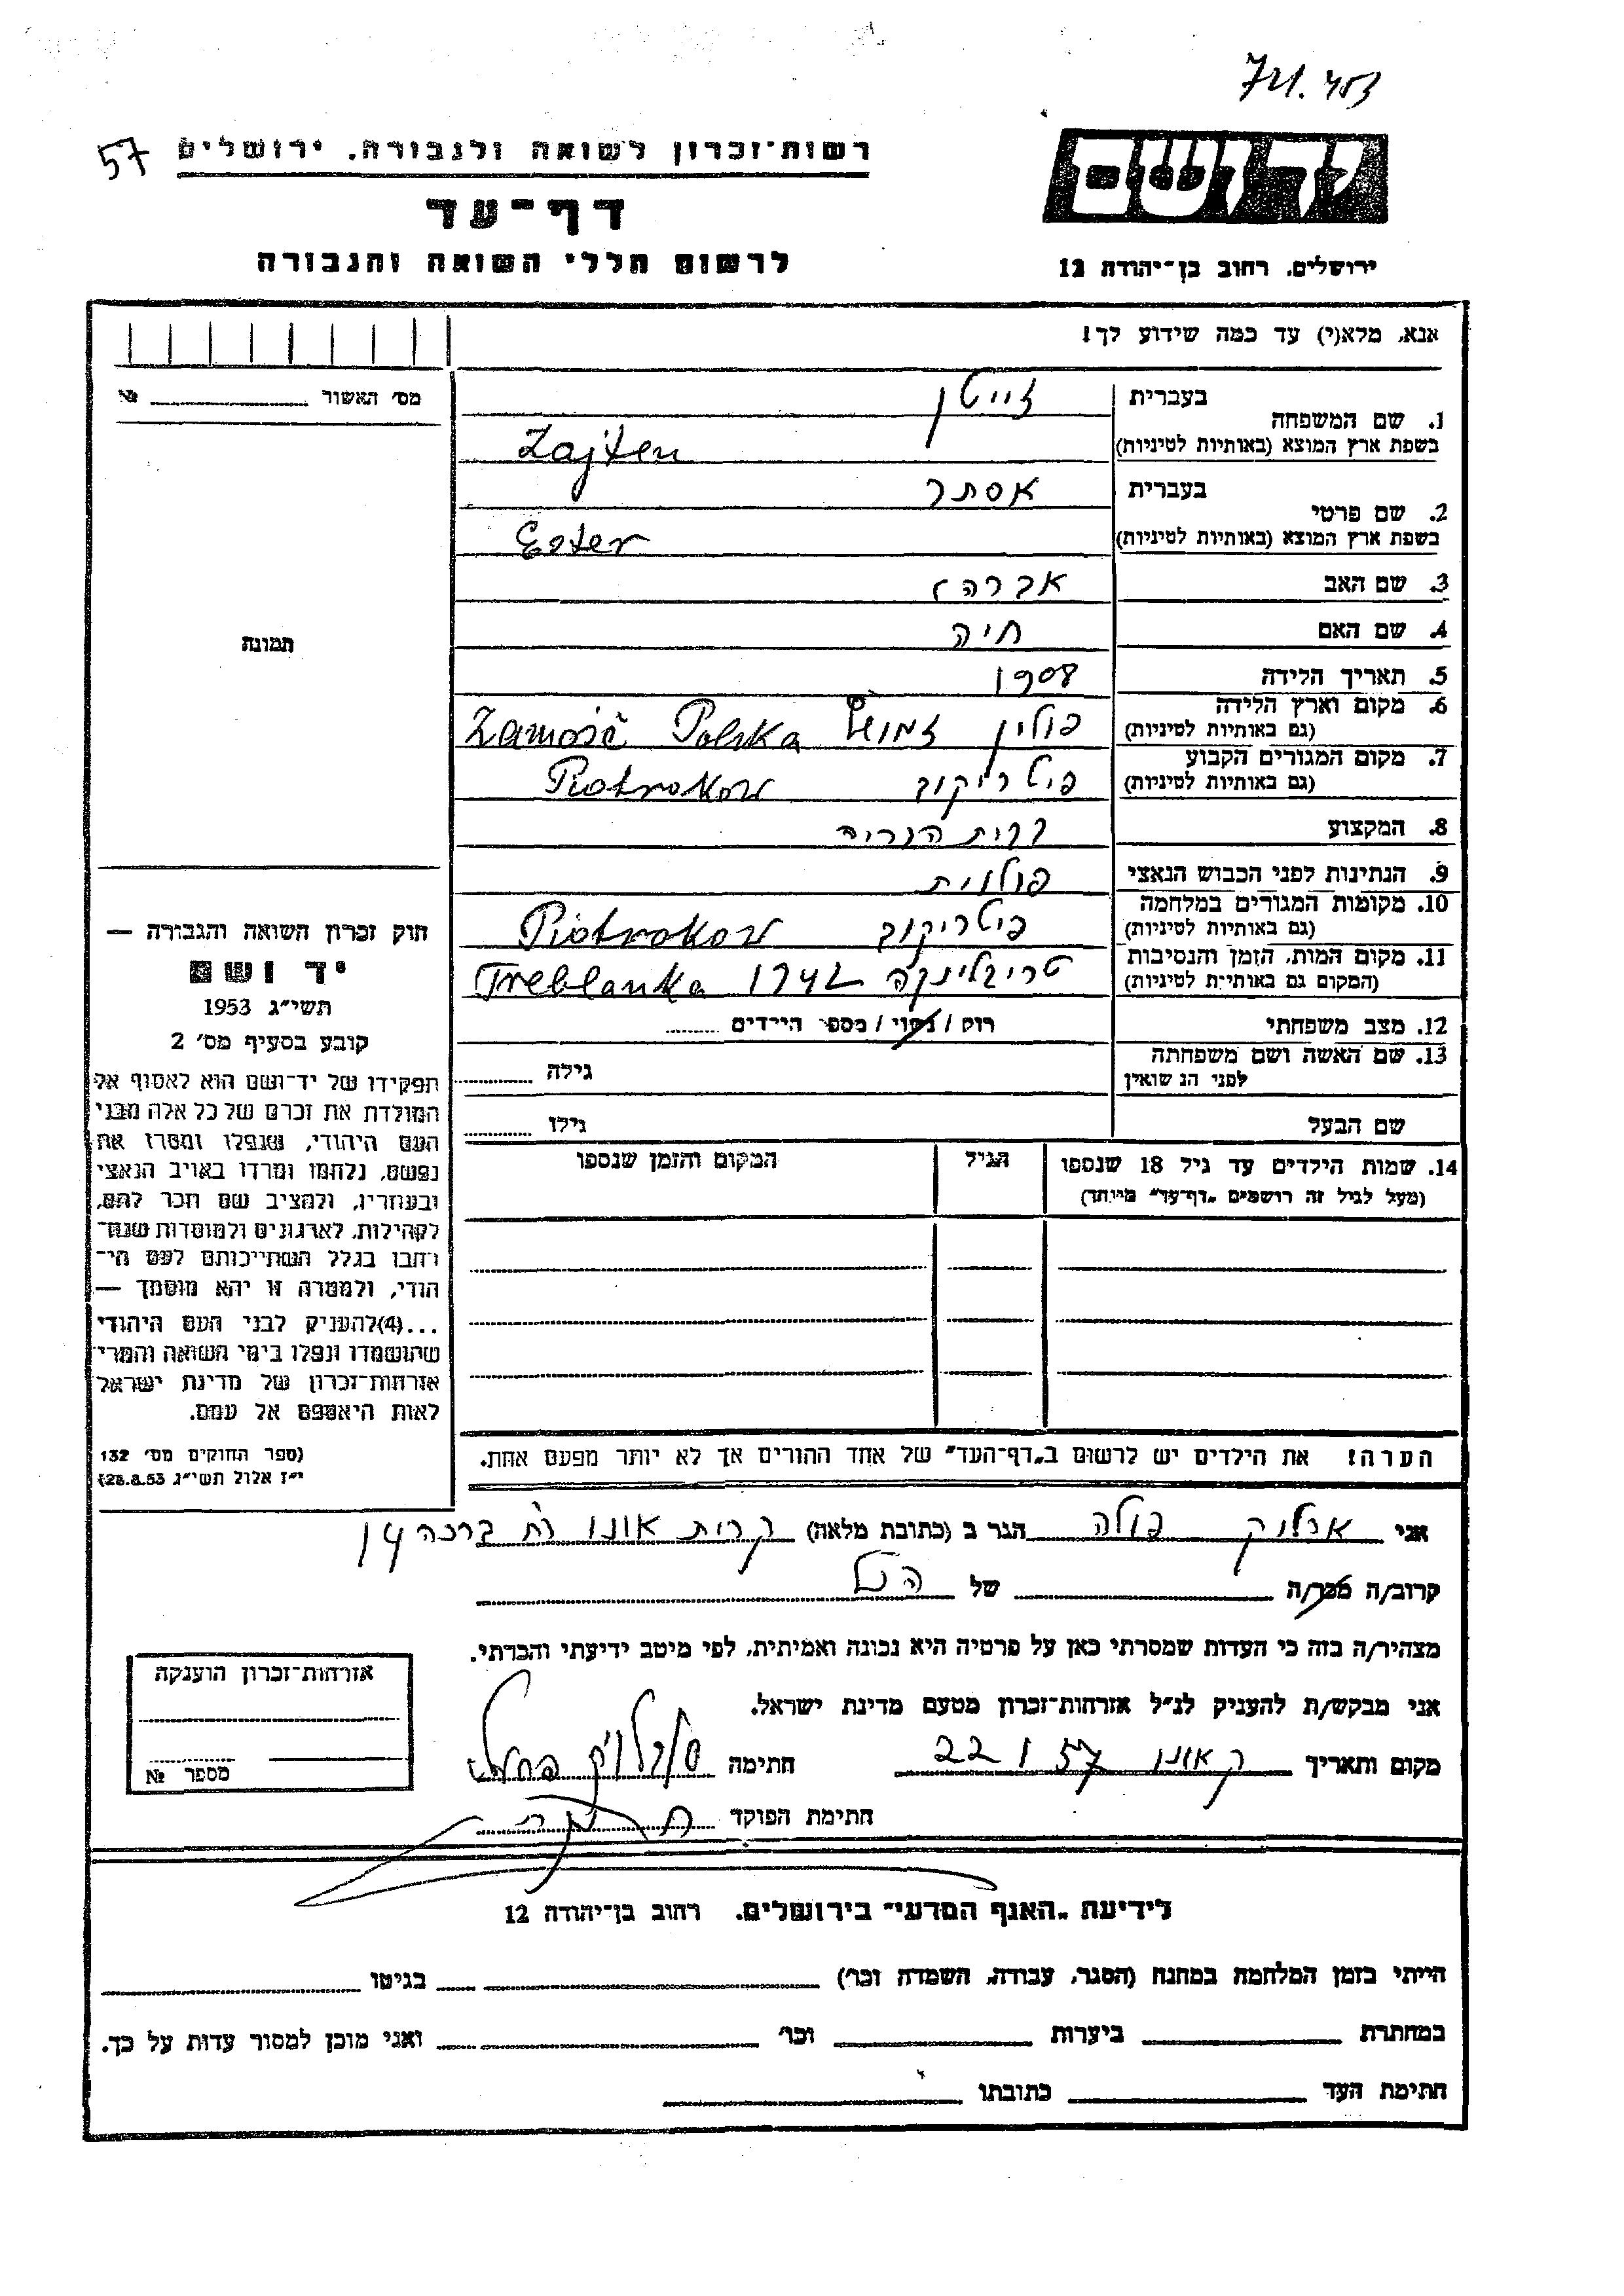 57
רשות־זכרון לשואה ולגבורה, ירושלים
דף־עד
לרשום חללי השואה והגבורה
ידושם
ירושלים, רחוב בן־יהודה 12
אנא, מלא(י) עד כמה שידוע לך!
מס׳ האשור № ........
1. שם המשפחה
בעברית זייטן
בשפת ארץ המוצא (באותיות לטיניות) Zajten
2. שם פרטי
בעברית אסתר
בשפת ארץ המוצא (באותיות לטיניות) Ester
3. שם האב אברהם
4. שם האם חיה
5. תאריך הלידה 1908
6. מקום וארץ הלידה
(גם באותיות לטיניות) פולין זמושץ Zamość Polska
7. מקום המגורים הקבוע
(גם באותיות לטיניות) פיטריקוב Piotrokow
8. המקצוע
9. הנתינות לפני הכבוש הנאצי פולנית
10. מקומות המגורים במלחמה
(גם באותיות לטיניות) פיטריקוב Piotrokow
11. מקום המות, הזמן והנסיבות
(המקום גם באותיות לטיניות) טריבלינקה 1942 Treblanka
12. מצב משפחתי רוק / נשוי / מספר הילדים ........
13. שם האשה ושם משפחתה
לפני הנשואין גילה ........
שם הבעל גילו ........
14. שמות הילדים עד גיל 18 שנספו הגיל המקום והזמן שנספו
(מעל לגיל זה רושמים „דף־עד” מיוחד)
הערה! את הילדים יש לרשום ב„דף־העד” של אחד ההורים אך לא יותר מפעם אחת.
תמונה
חוק זכרון השואה והגבורה —
יד ושם
תשי״ג 1953
קובע בסעיף מס׳ 2
תפקידו של יד־ושם הוא לאסוף אל
המולדת את זכרם של כל אלה מבני
העם היהודי, שנפלו ומסרו את
נפשם, נלחמו ומרדו באויב הנאצי
ובעוזריו, ולהציב שם וזכר להם,
לקהילות, לארגונים ולמוסדות שנח־
רבו בגלל השתייכותם לעם הי־
הודי, ולמטרה זו יהא מוסמך —
...(4)להעניק לבני העם היהודי
שהושמדו ונפלו בימי השואה והמרי
אזרחות־זכרון של מדינת ישראל
לאות היאספם אל עמם.
(ספר החוקים מס׳ 132
י״ז אלול תשי״ג 28.8.53)
אני פולה הגר ב (כתובת מלאה) קרית אונו רח ברכה 14
קרוב/ה מכר/ה ........ של ........
מצהיר/ה בזה כי העדות שמסרתי כאן על פרטיה היא נכונה ואמיתית, לפי מיטב ידיעתי והכרתי.
אני מבקש/ת להעניק לנ״ל אזרחות־זכרון מטעם מדינת ישראל.
מקום ותאריך ק אונו 22 1 57 חתימה
חתימת הפוקד
אזרחות־זכרון הוענקה
מספר №
לידיעת „האגף המדעי” בירושלים, רחוב בן־יהודה 12
הייתי בזמן המלחמה במחנה (הסגר, עבודה, השמדה וכו׳) ........ בגיטו ........
במחתרת ........ ביערות ........ וכו׳ ........ ואני מוכן למסור עדות על כך.
חתימת העד ........ כתובתו ........